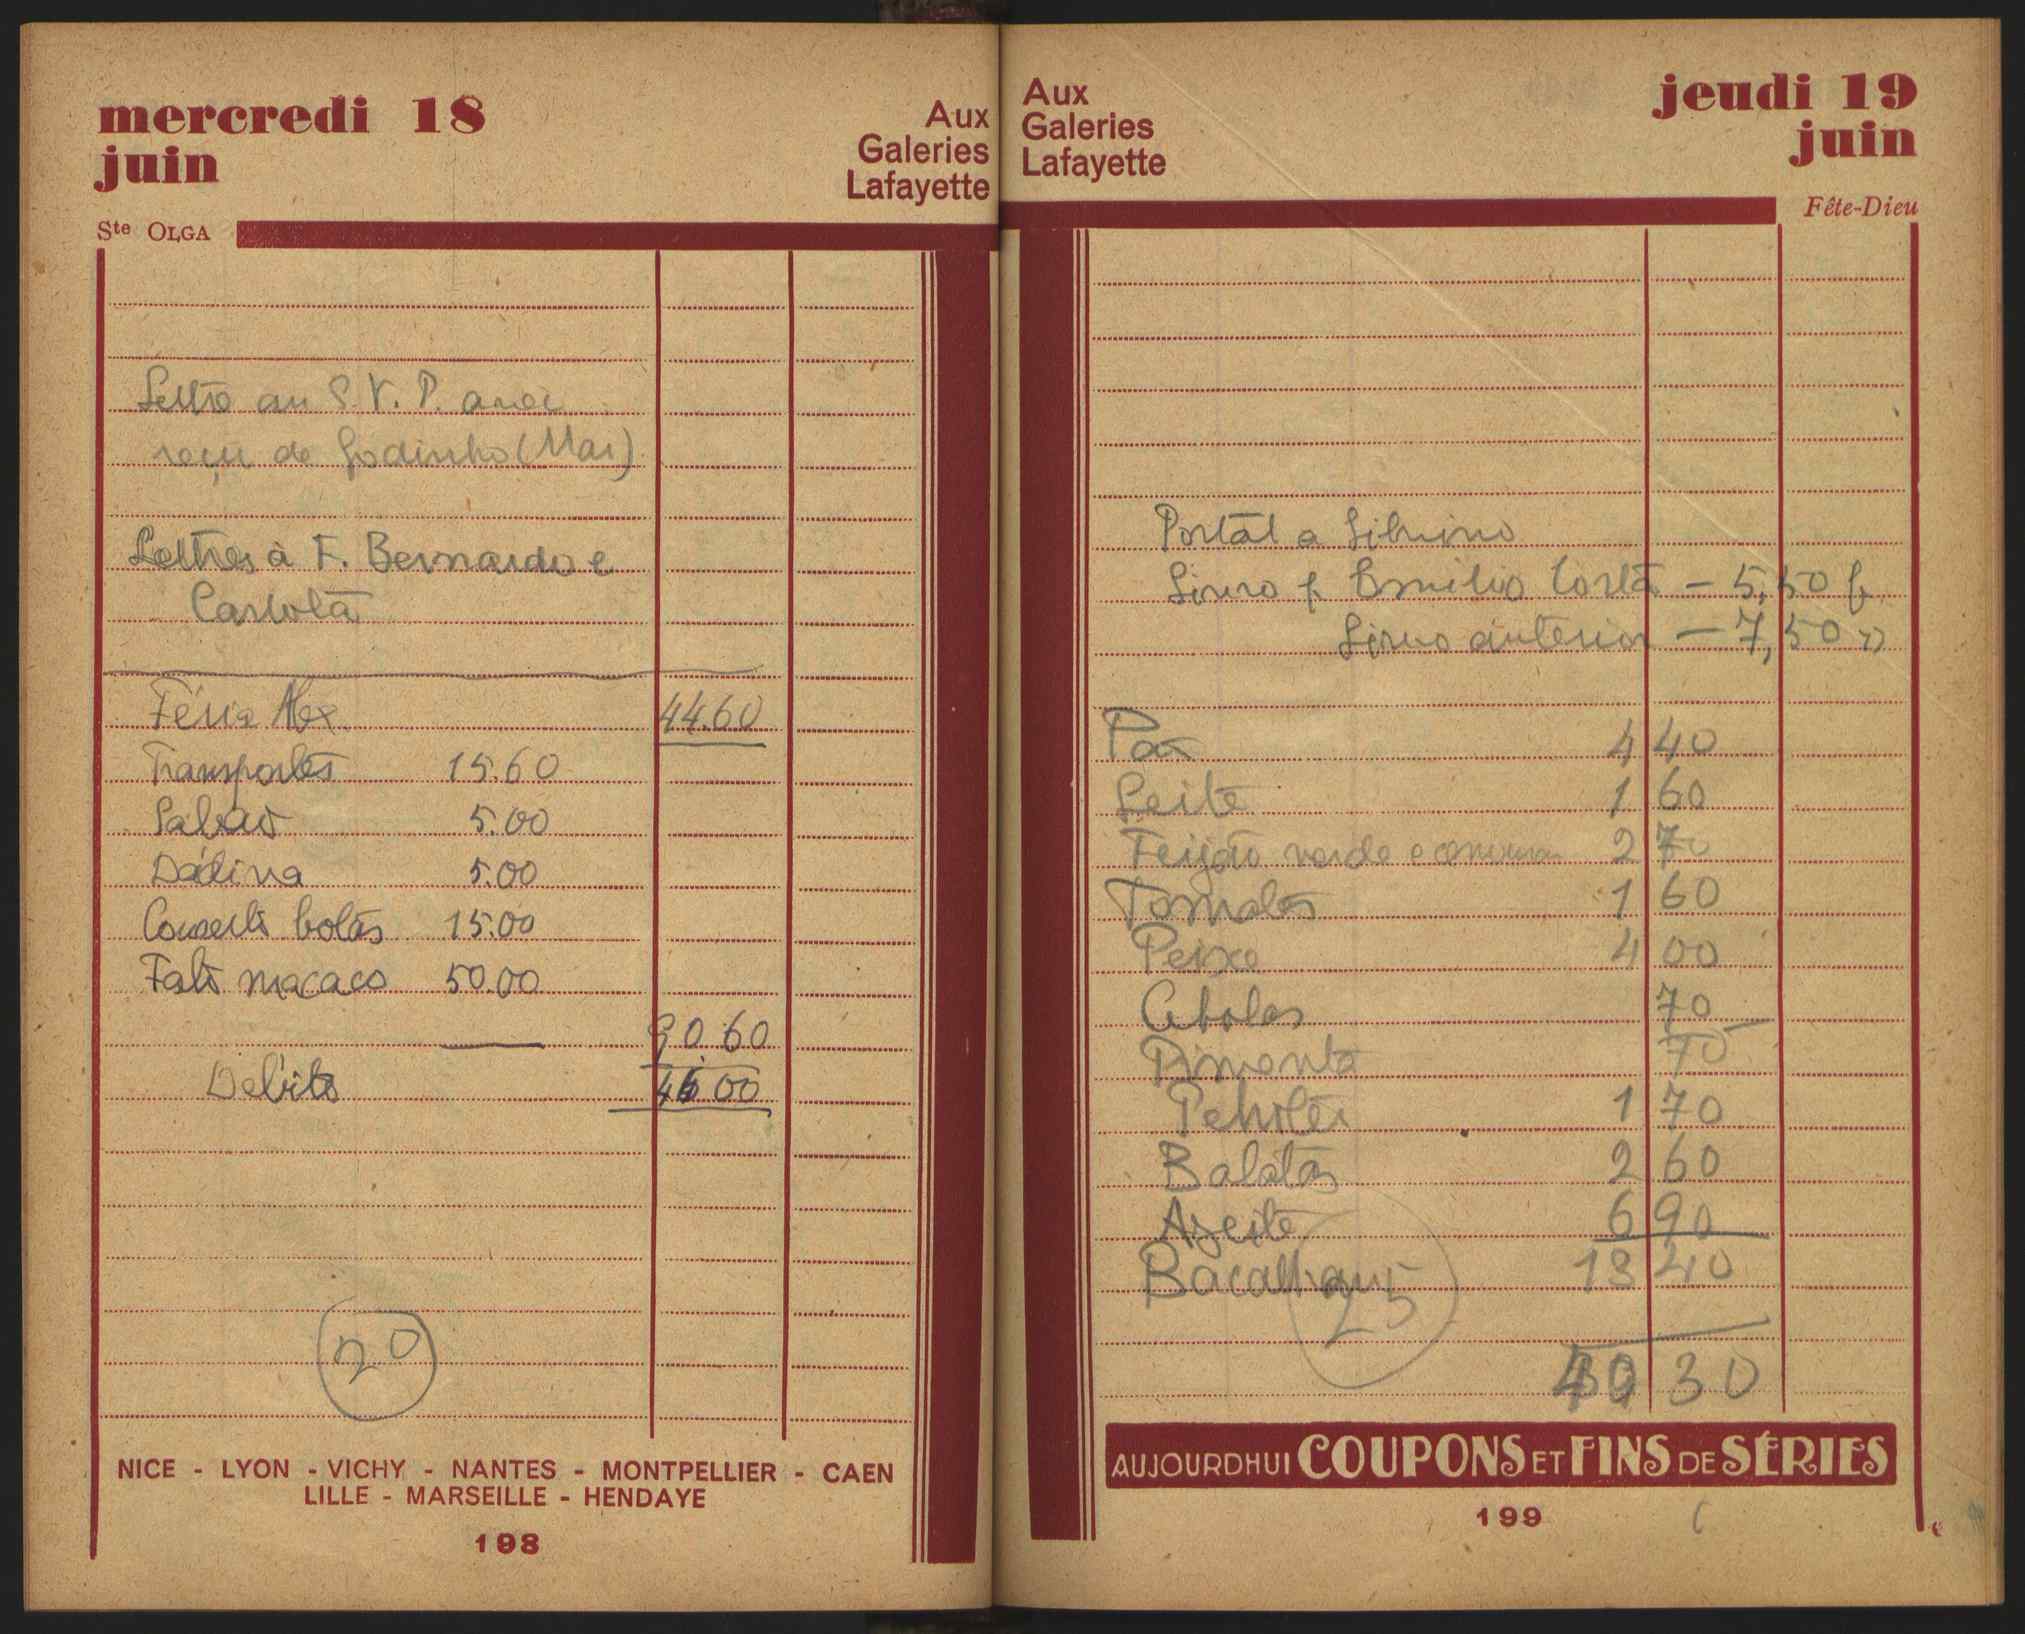 mercredi 18
juin
Aux
Galeries
Lafayette
Ste OLGA
Lettre au S.V.P. avec
reçu de Godinho (Mai)
Lettres à F. Bernardo e
Carlota
Féria Alex 44.60
Transportes 15.60
Sabão 5.00
Dádiva 5.00
Conserto botas 15.00
Fato macaco 50.00
90.60
Debito 46 00
20
NICE - LYON - VICHY - NANTES - MONTPELLIER - CAEN
LILLE - MARSEILLE - HENDAYE
198
Aux
Galeries
Lafayette
jeudi 19
juin
Fête-Dieu
Postal a Silvino
Livro p. Emilio Costa - 5,50 f.
Livro anterior - 7,50 »
Pão 4 40
Leite 1 60
Feijão verde e cenoura 2 70
Tomates 1 60
Peixe 4 00
Cebolas 70
Pimenta 70
Petroleo 1 70
Batatas 2 60
Azeite 6 90
Bacalhau 13 40
25
40 30
AUJOURDHUI COUPONS ET FINS DE SÉRIES
199